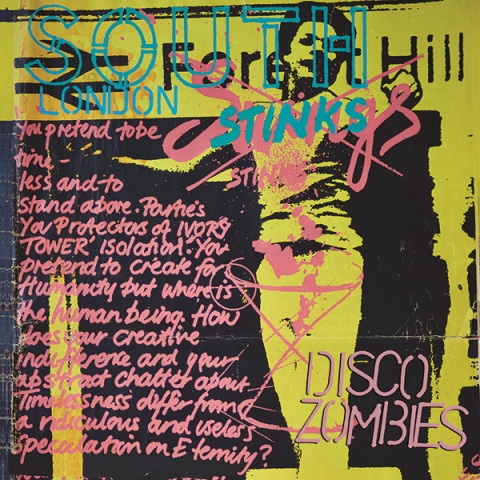 SOUTH
Forest Hill
LONDON
STINKS
STINKS
You pretend to be
time-
less and to
stand above. Parties
You Protectors of IVORY
TOWER' isolation. You
pretend to create for
Humanity but where is
the human being. How
does your creative
indifference and your
abstract chatter about
Timelessness differ from
a ridiculous and useless
speculation on Eternity?
DISCO
ZOMBIES